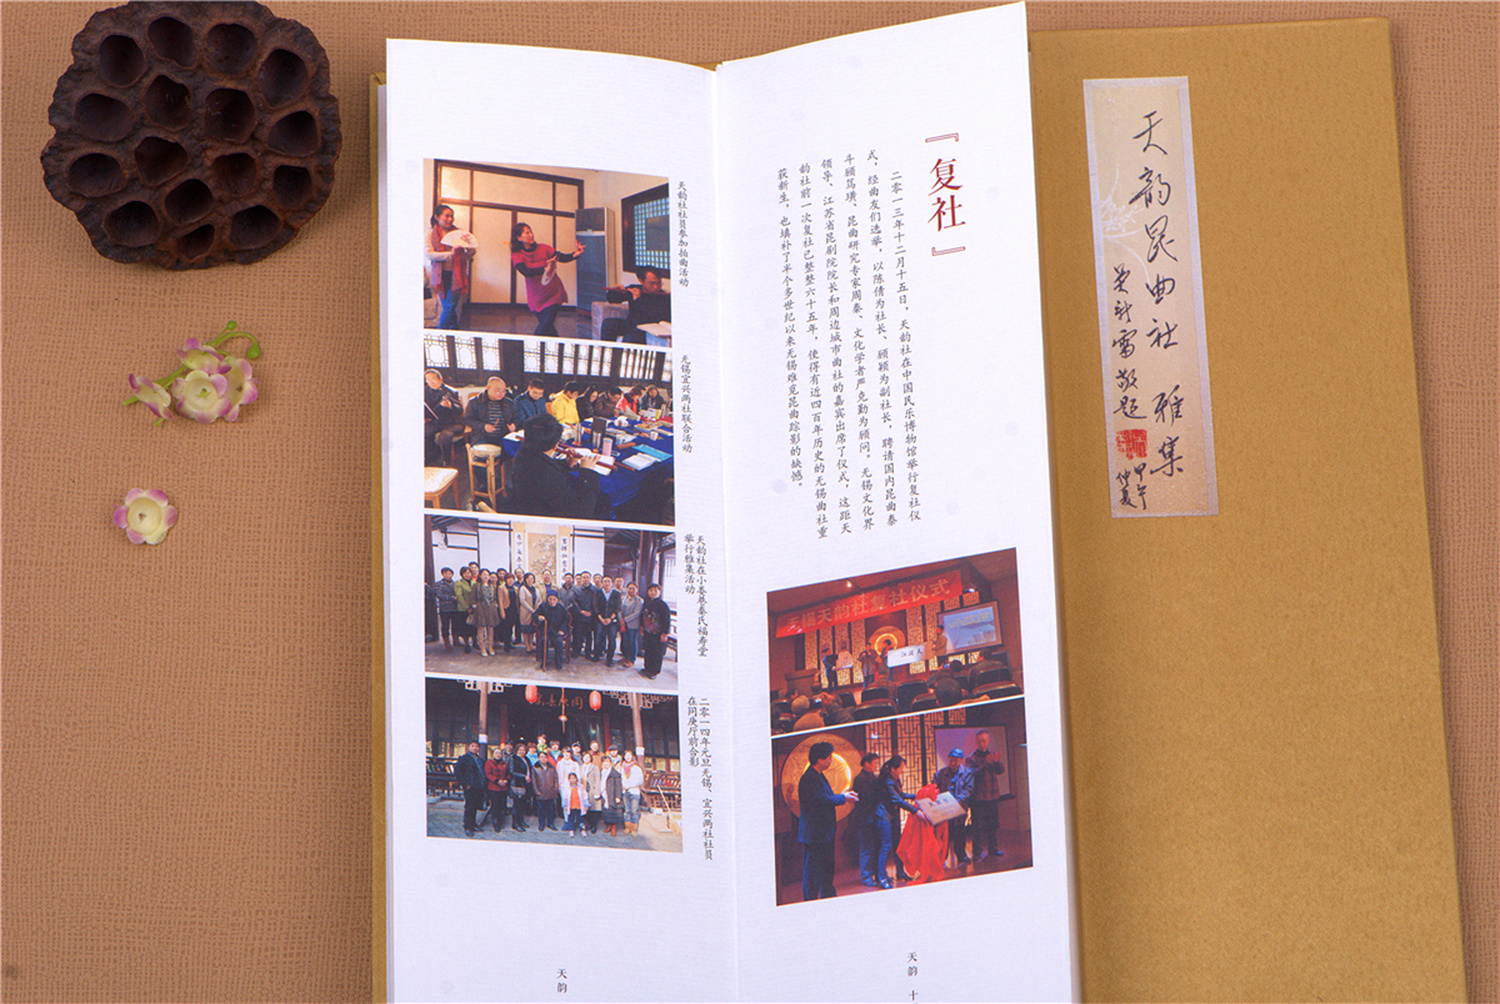 天韵昆曲社 雅集
吴新雷敬题
甲午
仲夏
『复社』
二零一三年十二月十五日，天韵社在中国民乐博物馆举行复社仪
式，经曲友们选举，以陈倩为社长、顾颖为副社长，聘请国内昆曲泰
斗顾笃璜、昆曲研究专家周秦、文化学者严克勤为顾问。无锡文化界
领导、江苏省昆剧院院长和周边城市曲社的嘉宾出席了仪式，这距天
韵社前一次复社已整整六十五年，使得有近四百年历史的无锡曲社重
获新生，也填补了半个多世纪以来无锡难觅昆曲踪影的缺憾。
无锡天韵社复社仪式
天韵 十
天韵社社员参加拍曲活动
无锡宜兴两社联合活动
天韵社在小娄巷秦氏福寿堂
举行雅集活动
二零一四年元旦无锡、宜兴两社社员
在同庚厅前合影
天韵